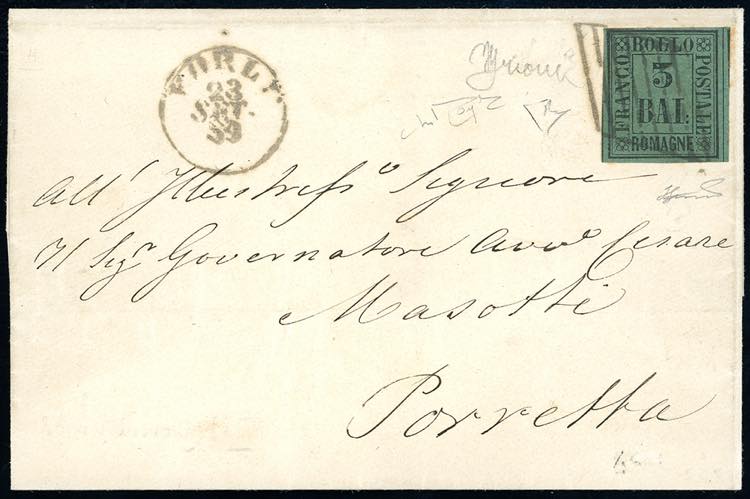 FORLI
23
SET.
59
FRANCO
BOLLO
POSTALE
3
BAI.
ROMAGNE
All' Illustress.o Signore
Il Sig.r Governatore Avv.o Cesare
Masotti
Porretta